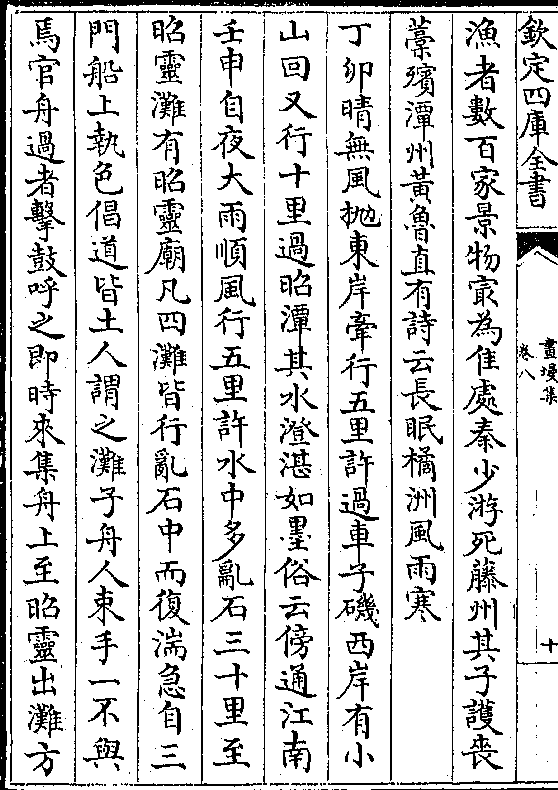 欽定四庫全書
畫墁集
卷八
十
漁者數百家景物㝡為佳處秦少游死藤州其子護喪
藁殯潭州黃魯直有詩云長眠橘洲風雨寒
丁卯晴無風抛東岸牽行五里許過車子磯西岸有小
山回又行十里過昭潭其水澄湛如墨俗云傍通江南
壬申自夜大雨順風行五里許水中多亂石三十里至
昭靈灘有昭靈廟凡四灘皆行亂石中而復湍急自三
門船上執色倡道皆土人謂之灘子舟人束手一不與
焉官舟過者擊鼓呼之即時來集舟上至昭靈出灘方